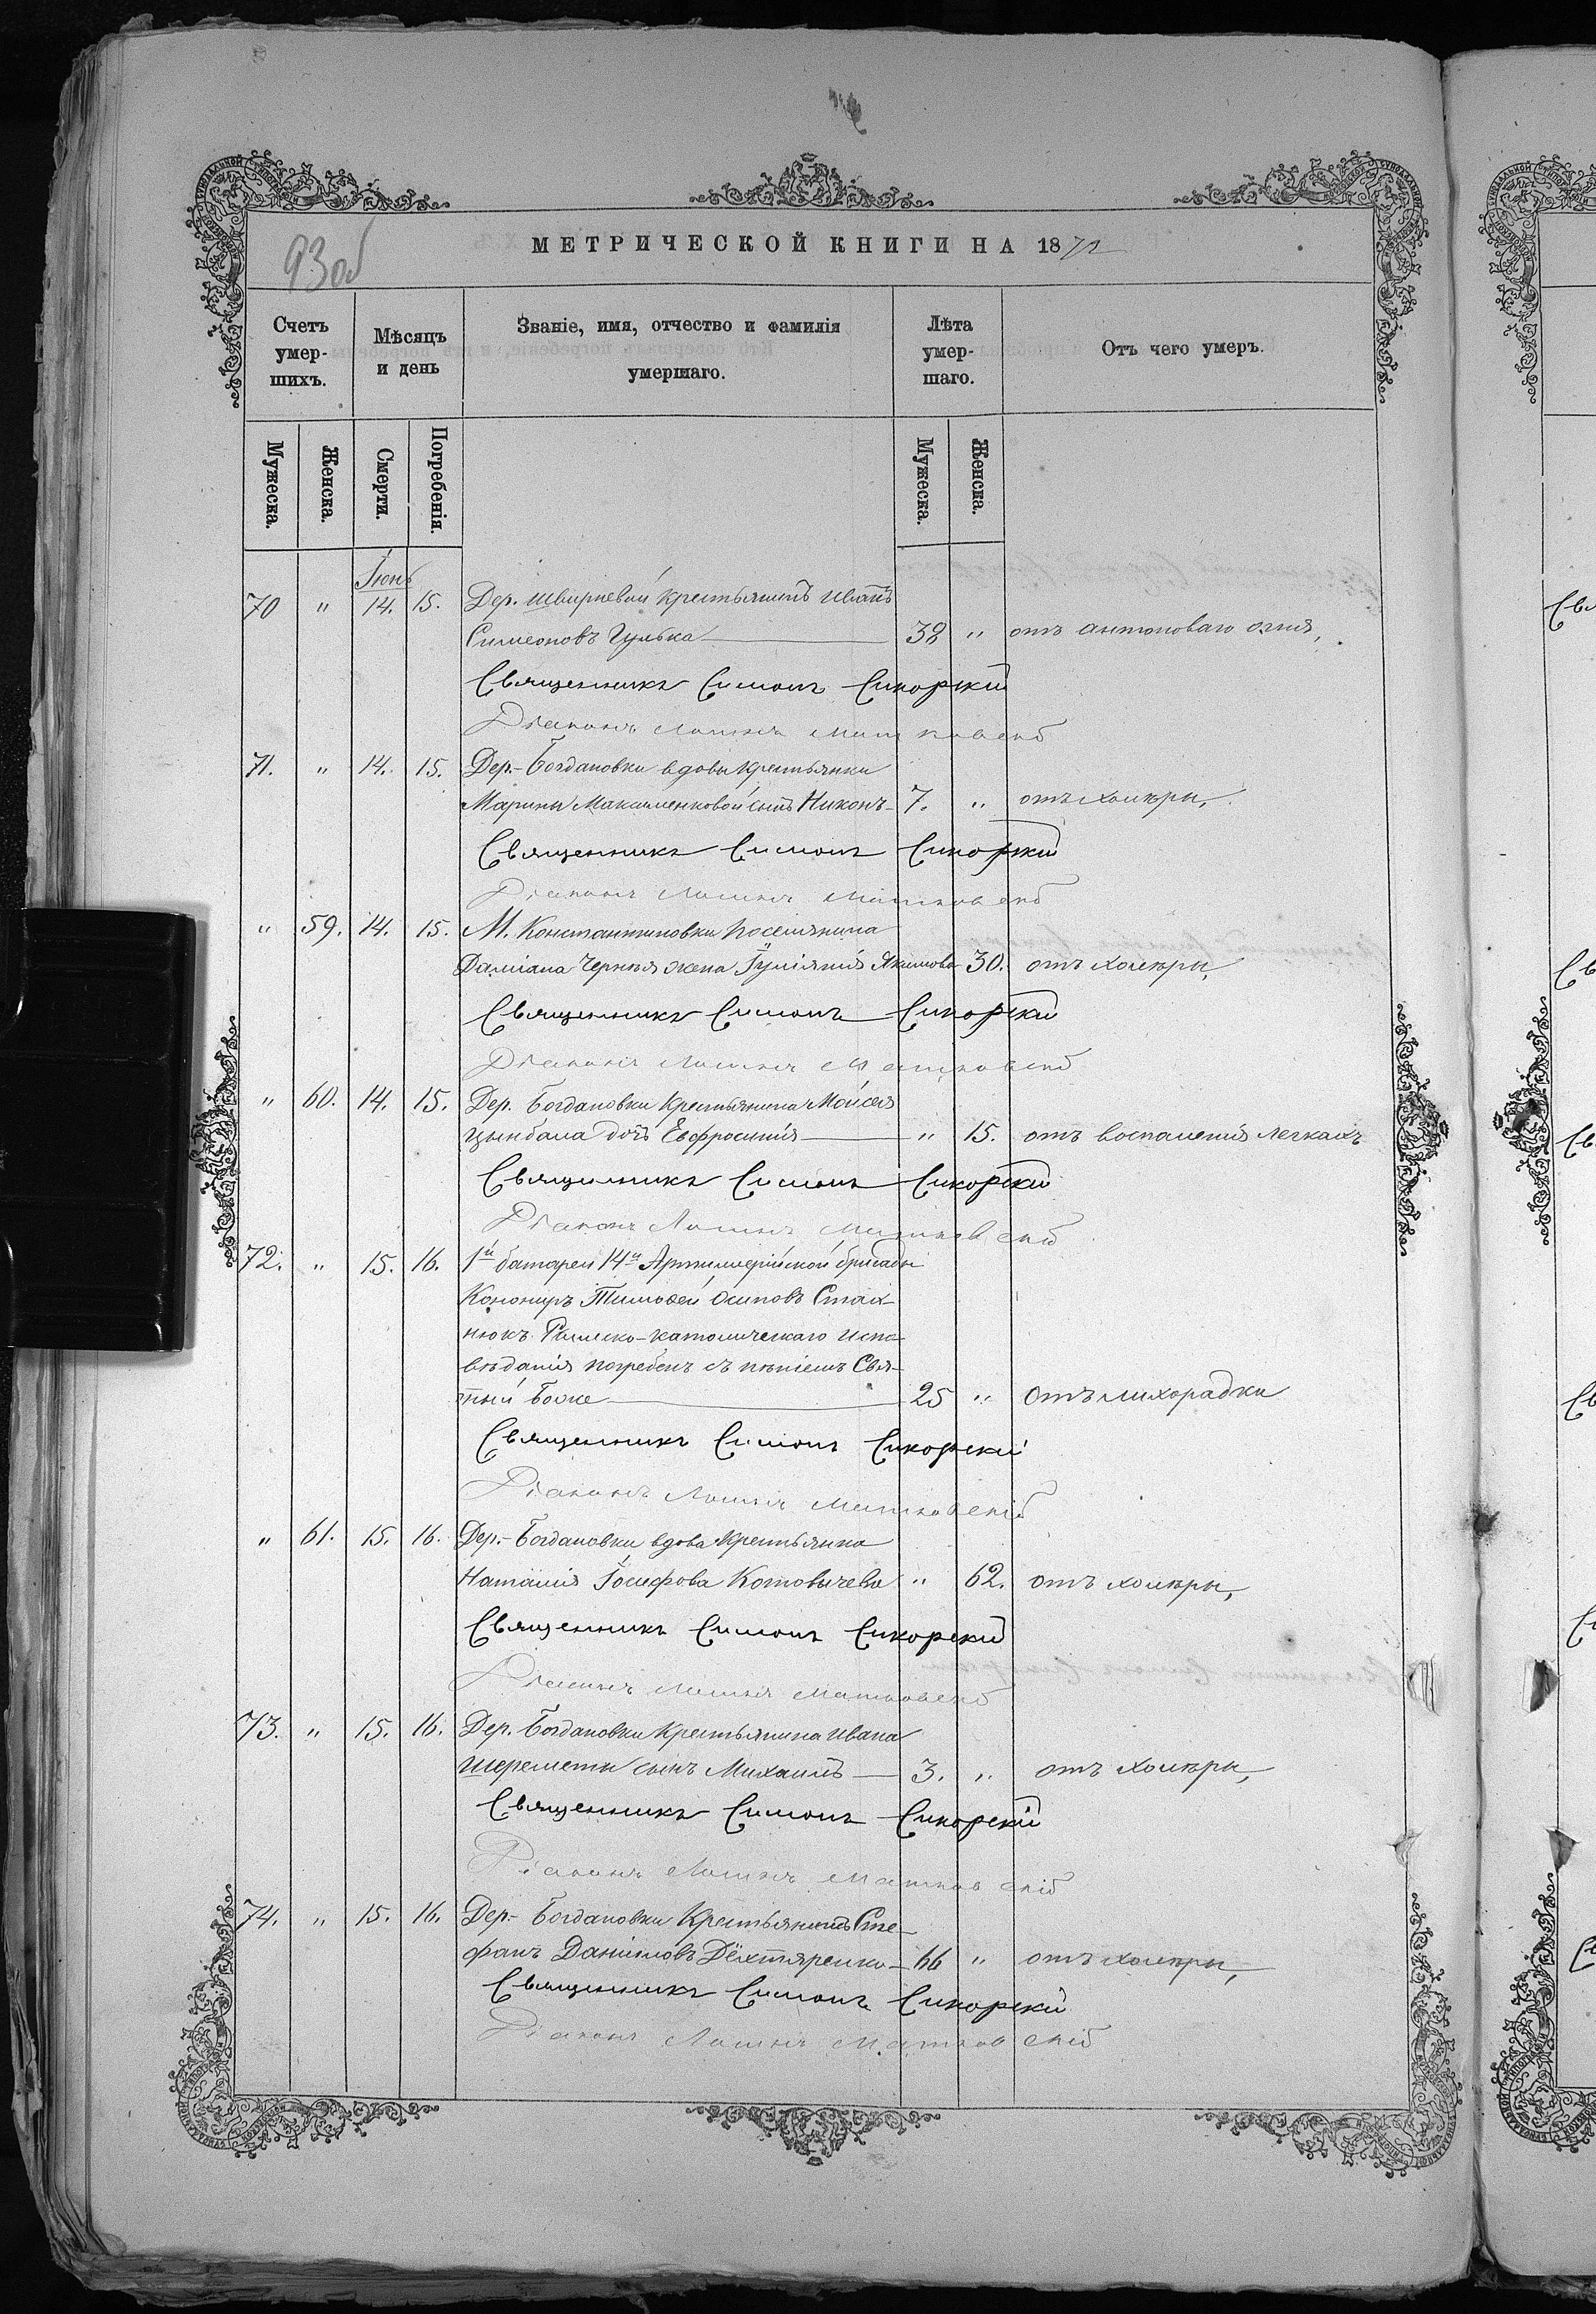 93 об
МЕТРИЧЕСКОЙ КНИГИ НА 1872
Счетъ умер-шихъ.
Мѣсяцъ и день
Званіе, имя, отчество и фамилія умершаго.
Лѣта умер-шаго.
Отъ чего умеръ.
Мужеска.
Женска.
Смерти.
Погребенія.
Мужеска.
Женска.
Іюнь
70 " 14. 15. Дер. Швырневой крестьянинъ Иванъ
Симеоновъ Гулька 38 " отъ антоноваго огня,
Священникъ Симонъ Сикорскій
Діаконъ Матковскій
71. " 14. 15. Дер. Богдановки вдовы крестьянки
Марины Максименковой сынъ Никонъ 7. " отъ холеры,
Священникъ Симонъ Сикорскій
Діаконъ Матковскій
" 59. 14. 15. М. Константиновки поселянина
Даміана Черныя жена Іуліянія Якимова 30. отъ холеры,
Священникъ Симонъ Сикорскій
Діаконъ Матковскій
" 60. 14. 15. Дер. Богдановки крестьянина Моисея
Цымбала дочь Евфросинія " 15. отъ воспаленія легкихъ
Священникъ Симонъ Сикорскій
Діаконъ Матковскій
72. " 15. 16. 1й батареи 14й Артиллерійской бригады
Канониръ Тимофей Осиповъ Стах-
нюкъ Римско-католическаго испо-
вѣданія погребенъ съ пѣніемъ Свя-
тый Боже 25 " отъ лихорадки
Священникъ Симонъ Сикорскій
Діаконъ Матковскій
" 61. 15. 16. Дер. Богдановки вдова крестьянка
Наталія Іосифова Котовичева " 62. отъ холеры,
Священникъ Симонъ Сикорскій
Діаконъ Матковскій
73. " 15. 16. Дер. Богдановки крестьянина Ивана
Шереметы сынъ Михаилъ 3. " отъ холеры,
Священникъ Симонъ Сикорскій
Діаконъ Матковскій
74. " 15. 16. Дер. Богдановки крестьянинъ Сте-
фанъ Даниловъ Дехтяренко 66 " отъ холеры,
Священникъ Симонъ Сикорскій
Діаконъ Матковскій